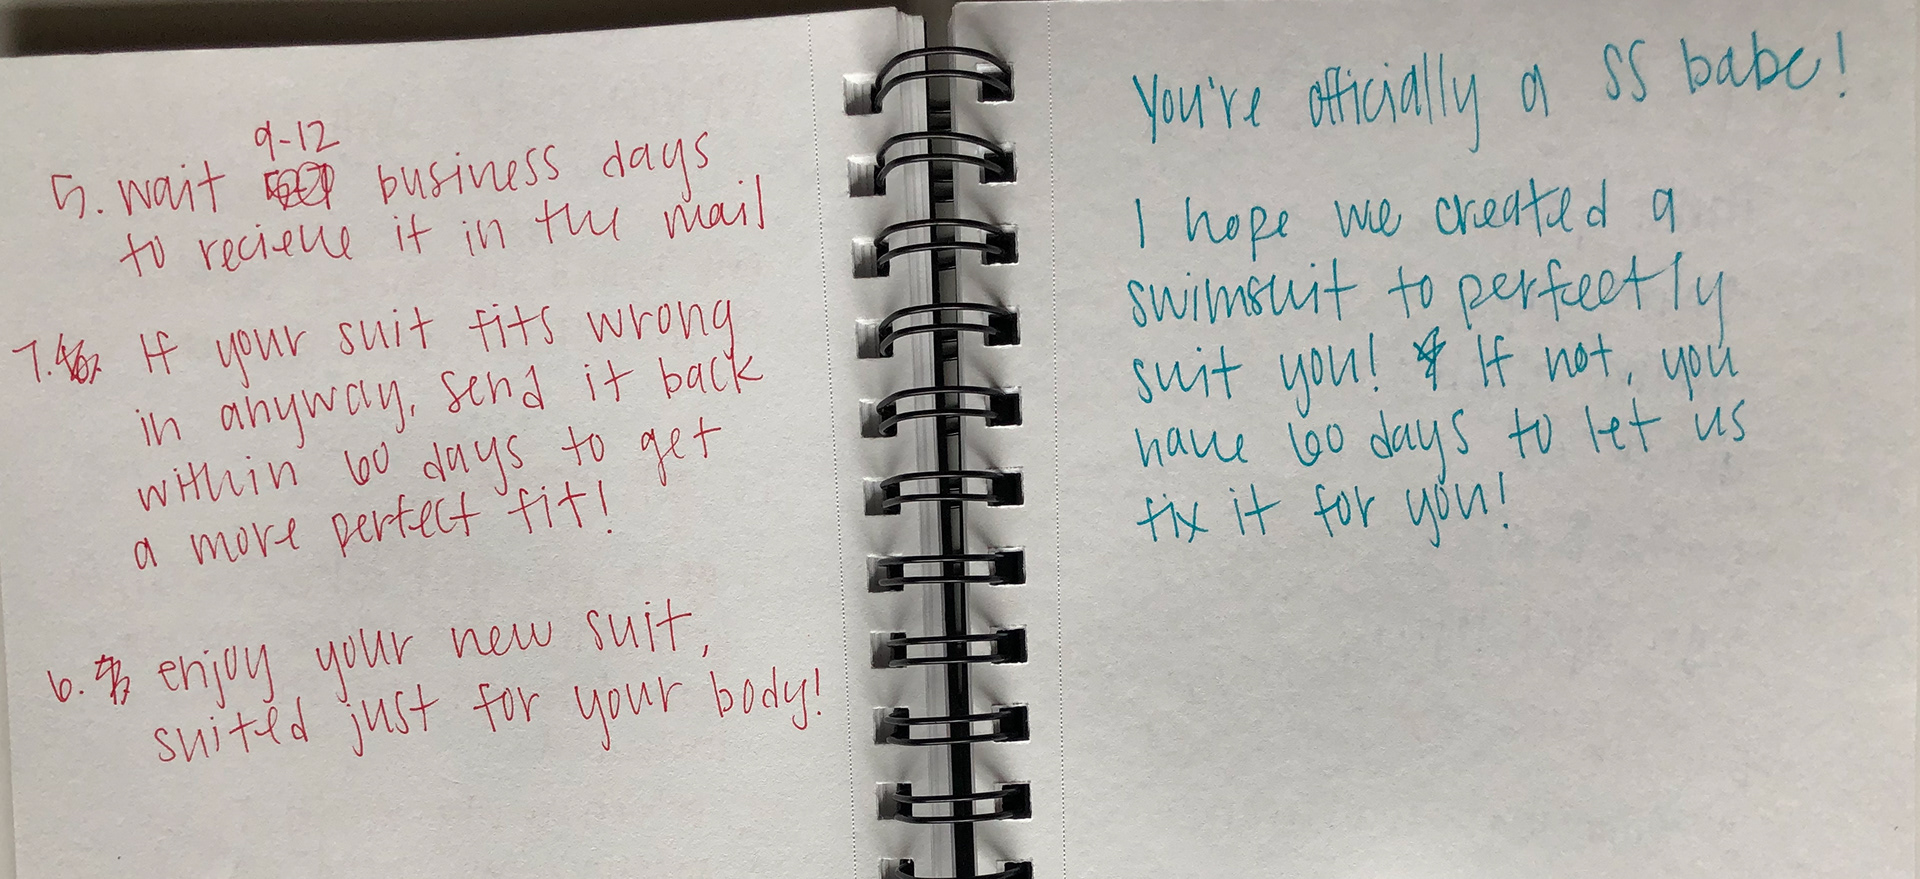 9-12
5. wait business days
to recieve it in the mail
7. If your suit fits wrong
in anyway, send it back
within 60 days to get
a more perfect fit!
6. enjoy your new suit,
suited just for your body!
You're officially a SS babe!
I hope we created a
swimsuit to perfectly
suit you! If not, you
have 60 days to let us
fix it for you!